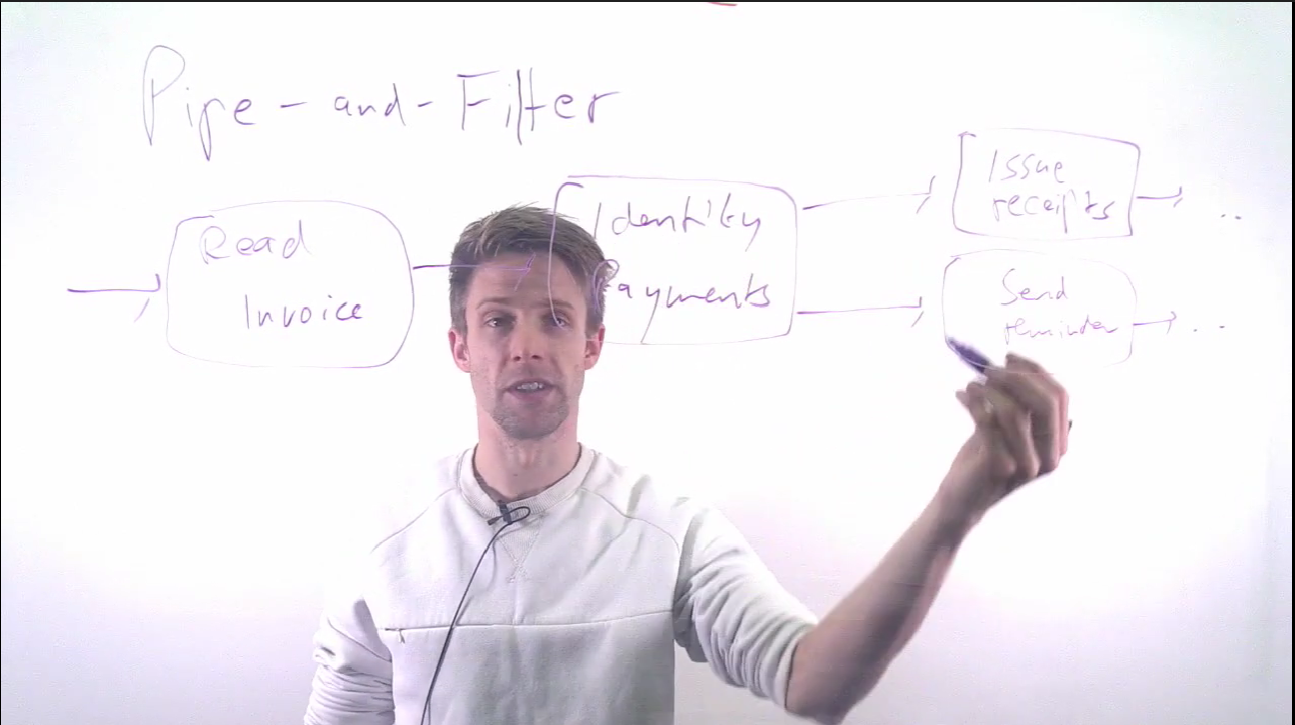 Pipe-and-Filter
Read
Invoice
Identify
Payments
Issue
receipts
..
Send
reminder
...